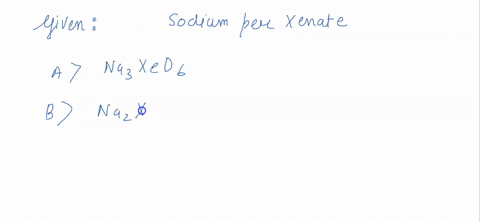 Given: Sodium per Xenate
A> Na3XeO6
B> Na2